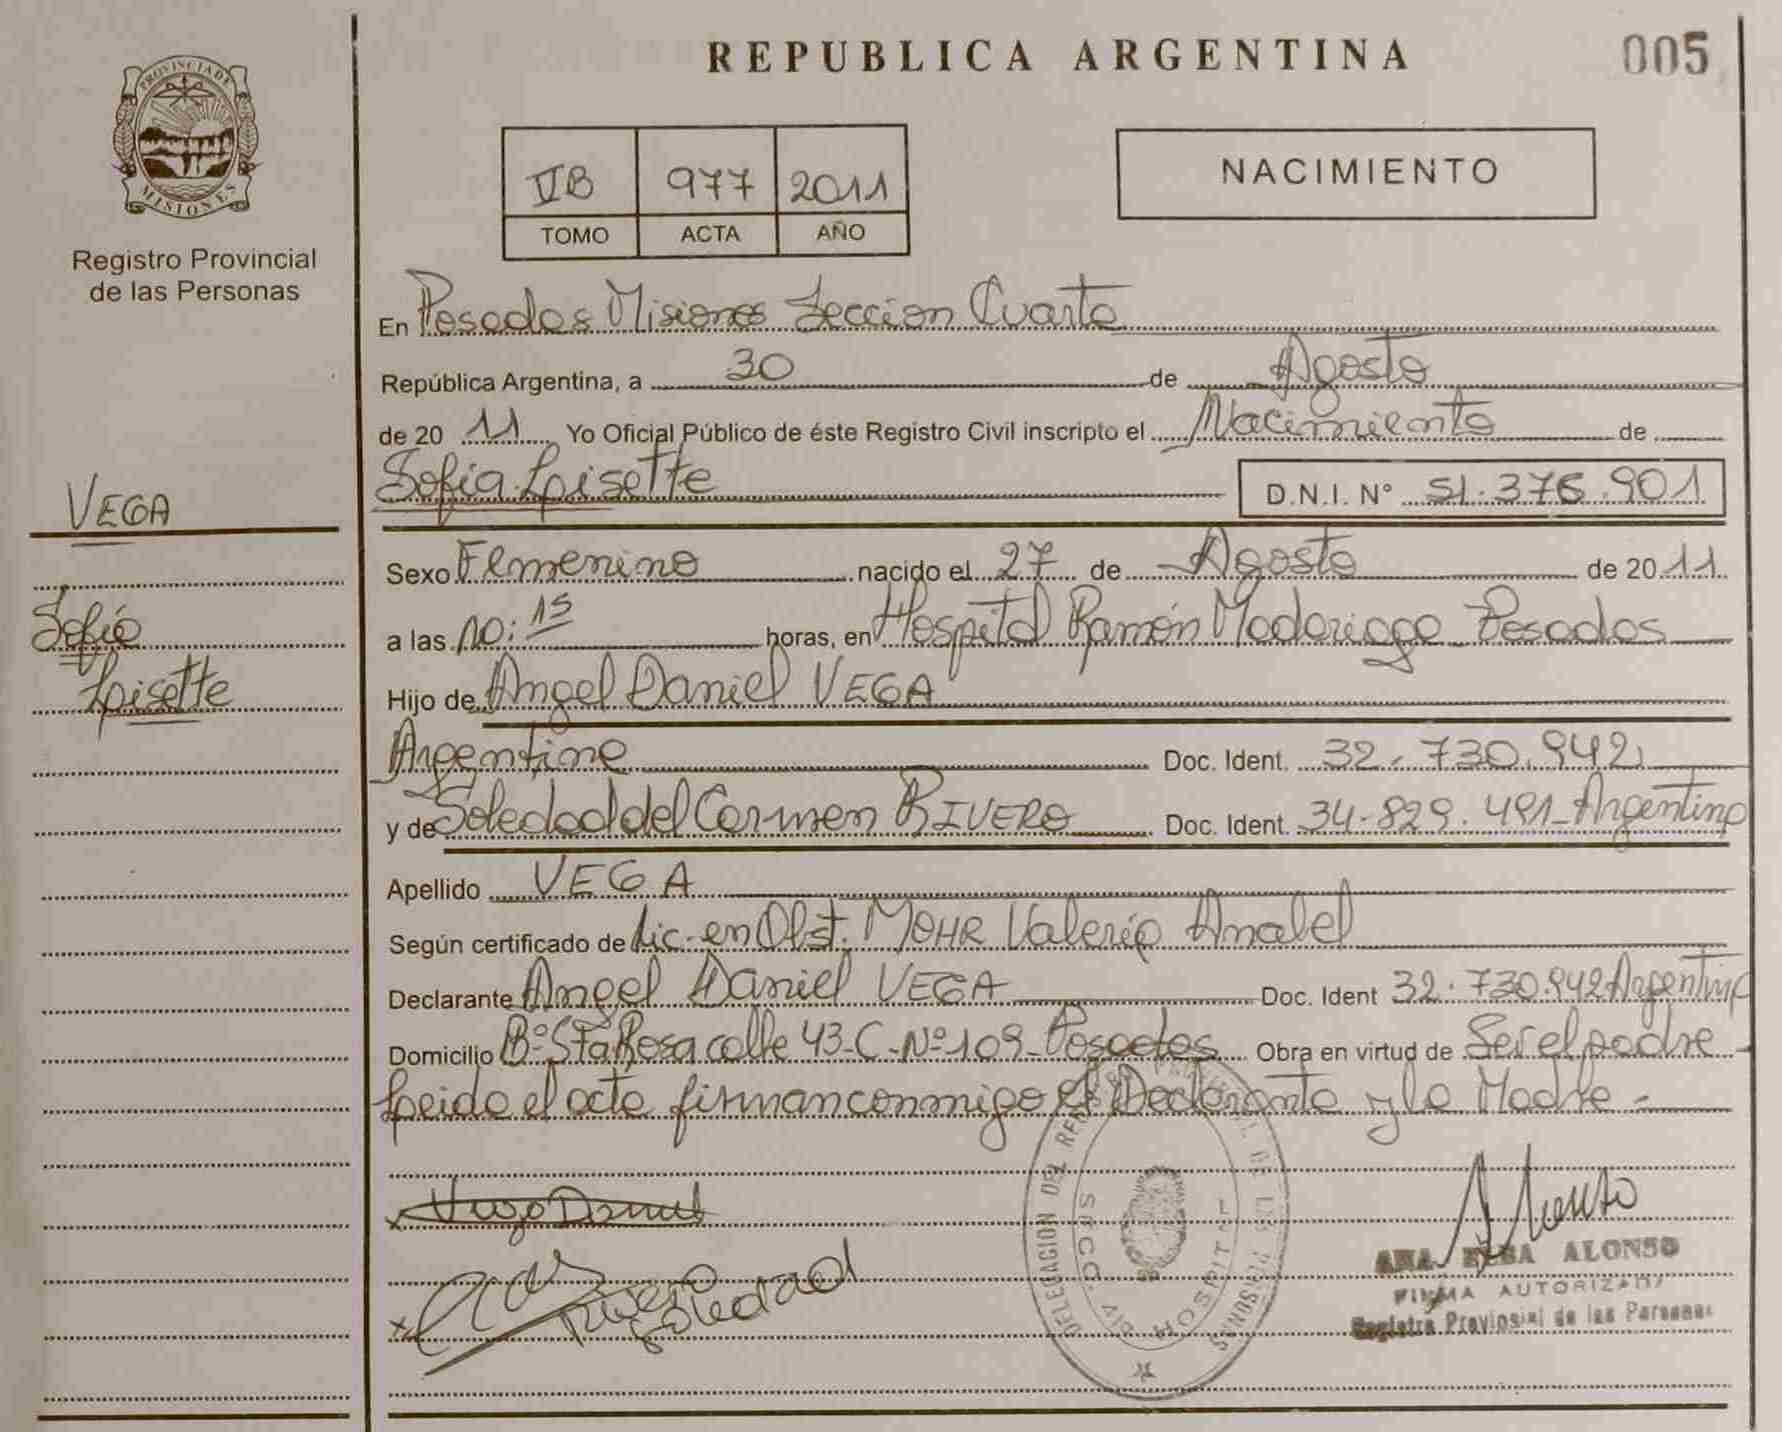 REPUBLICA ARGENTINA
005
PROVINCIA DE
MISIONES
Registro Provincial
de las Personas
VB 977 2011
TOMO ACTA AÑO
NACIMIENTO
En Posadas Misiones Seccion Cuarta
República Argentina, a 30 de Agosto
de 2011 Yo Oficial Público de éste Registro Civil inscripto el Nacimiento de
Sofía Lisette D.N.I. N° 51.376.901
VEGA
Sofía
Lisette
Sexo Femenino nacido el 27 de Agosto de 2011
a las 10:15 horas, en Hospital Ramón Madariaga Posadas
Hijo de Angel Daniel VEGA
Argentino Doc. Ident. 32.730.942
y de Soledad del Carmen RIVERO Doc. Ident. 34.829.491 Argentina
Apellido VEGA
Según certificado de Lic. en Obst. MOHR Valeria Anabel
Declarante Angel Daniel VEGA Doc. Ident 32.730.942 Argentino
Domicilio B° Sta Rosa calle 43-C-N° 109-Posadas Obra en virtud de Ser el padre -
Leida el acta firman conmigo el Declarante y la Madre -
Vega Daniel
Rivero
Soledad
DELEGACION DEL REGISTRO PROVINCIAL DE LAS PERSONAS
SECC. HOSPITAL
ANA ELSA ALONSO
FIRMA AUTORIZADA
Registro Provincial de las Personas